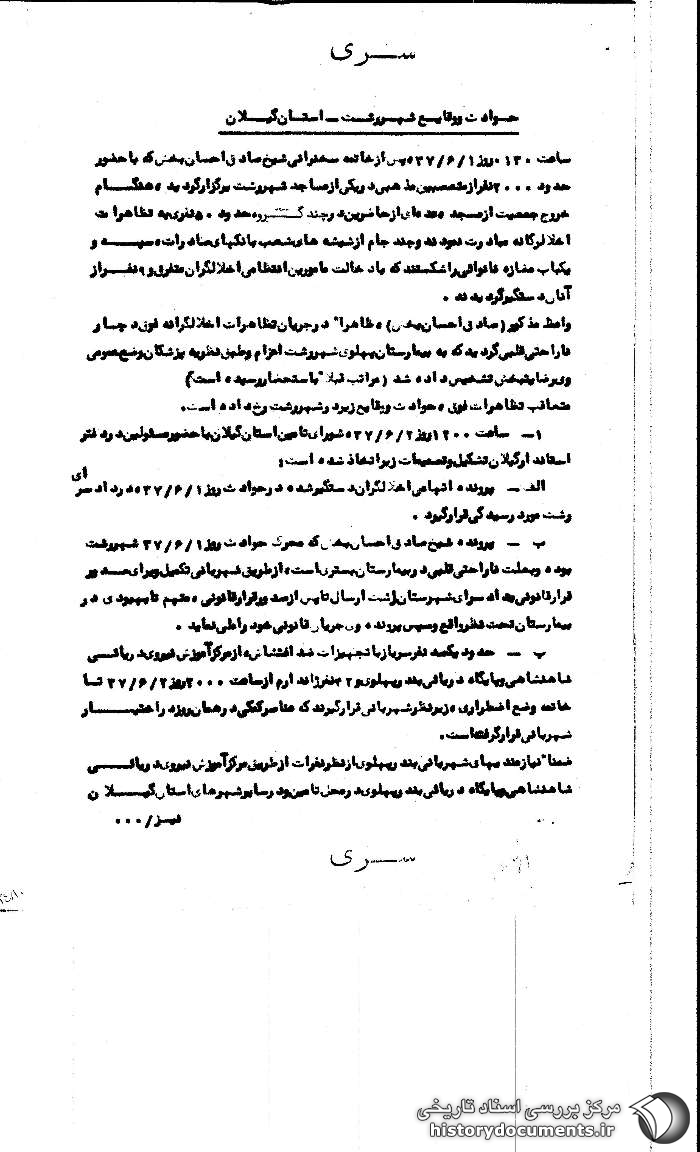 ســری
حـوادث ووقایع شهررشت ــ استان گیــلان
ساعت ۰۱۳۰ روز ۳۷/۶/۱ پس از خاتمه سخنرانی شیخ صادق احسان بخش که با حضور
حدود ۲۰۰۰ نفر از متعصبین مذهبی در یکی از مساجد شهررشت برگزار گردید ه هنگام
خروج جمعیت از مسجد عده ای از حاضرین در چند گروه حدود ۵۰ نفری به تظاهرات
اخلالگرانه مبادرت نمودند و چند جام از شیشه های شعب بانکهای صادرات ه سپــه و
یکباب مغازه نانوائی را شکستند که با دخالت مامورین انتظامی اخلالگران متفرق و ۹ نفــر از
آنان دستگیر گردیدند .
واعظ مذکور (صادق احسان بخش) ه ظاهرا" در جریان تظاهرات اخلالگرانه فوق دچــار
ناراحتی قلبی گردید که به بیمارستان پهلوی شهررشت اعزام و طبق نظریه پزشکان وضع عمومی
وی رضایتبخش تشخیص داده شد (مراتب قبلا" باستحضار رسیده است)
متعاقب تظاهرات فوق ه حوادث و وقایع زیر در شهررشت رخ داده است.
۱ــ ساعت ۱۲۰۰ روز ۳۷/۶/۲ ه شورای تامین استان گیلان با حضور مسئولین در دفتر
استاندار گیلان تشکیل و تصمیمات زیر اتخاذ شده است :
الف ــ پرونده اتهامی اخلالگران دستگیر شده در حوادث روز ۳۷/۶/۱ ه در دادسرای
رشت مورد رسیدگی قرار گیرد .
ب ــ پرونده شیخ صادق احسان بخش که محرک حوادث روز ۳۷/۶/۱ شهررشت
بوده و بعلت ناراحتی قلبی در بیمارستان بستری است ه از طریق شهربانی تکمیل و برای صــدور
قرار قانونی به دادسرای شهرستان رشت ارسال تا پس از صدور قرار قانونی ه متهم تا بهبودی در
بیمارستان تحت نظر واقع و سپس پرونده وی جریان قانونی خود را طی نماید .
پ ــ حدود یکصد نفر سرباز با تجهیزات ضد اغتشاش ه از مرکز آموزش نیروی دریائــی
شاهنشاهی و پایگاه دریائی بندر پهلوی و ۲۰ نفر ژاندارم از ساعت ۲۰۰۰ روز ۳۷/۶/۲ تــا
خاتمه وضع اضطراری ه زیر نظر شهربانی قرار گیرند که عناصر کمکی در همان روز در اختیــار
شهربانی قرار گرفته است .
ضمنا" نیازمندیهای شهربانی بندر پهلوی از نظر نفرات از طریق مرکز آموزش نیروی دریائــی
شاهنشاهی و پایگاه دریائی بندر پهلوی در محل تامین و در سایر شهرهای استان گیــلان
نیــز/ ۰۰۰
ســری
مرکز بررسی اسناد تاریخی
historydocuments.ir